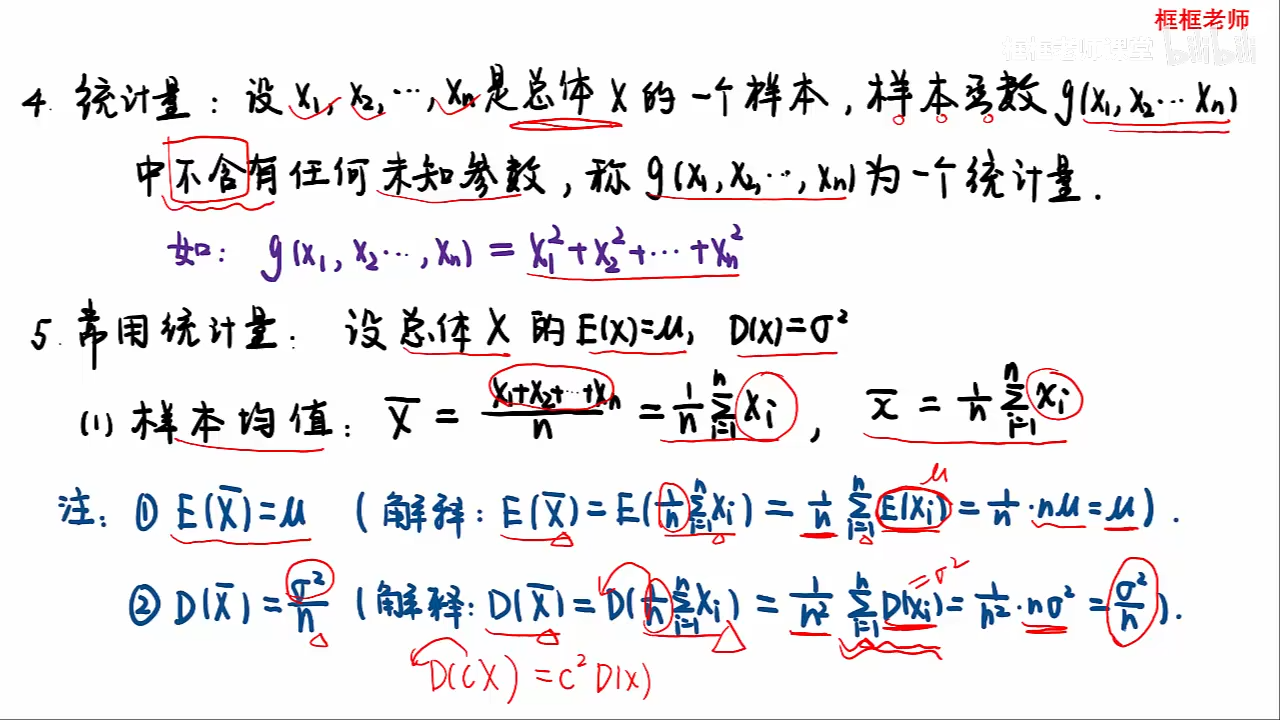 框框老师
框框老师课堂 bilibili
4. 统计量：设 X₁, X₂, ⋯, Xₙ是总体 X 的一个样本, 样本函数 g(X₁, X₂ ⋯ Xₙ)
中不含有任何未知参数, 称 g(X₁, X₂, ⋯, Xₙ)为一个统计量.
如: g(X₁, X₂ ⋯, Xₙ) = X₁² + X₂² + ⋯ + Xₙ²
5. 常用统计量: 设总体 X 的 E(X)=μ, D(X)=σ²
(1) 样本均值: X̄ = (X₁+X₂+⋯+Xₙ)/n = 1/n ∑ⁿᵢ₌₁ Xᵢ, x̄ = 1/n ∑ⁿᵢ₌₁ xᵢ
μ
注: ① E(X̄)=μ (解释: E(X̄)=E(1/n ∑ⁿᵢ₌₁ Xᵢ) = 1/n ∑ⁿᵢ₌₁ E(Xᵢ) = 1/n · nμ = μ).
=σ²
② D(X̄) = σ²/n (解释: D(X̄) = D(1/n ∑ⁿᵢ₌₁ Xᵢ) = 1/n² ∑ⁿᵢ₌₁ D(Xᵢ) = 1/n² · nσ² = σ²/n).
D(CX) = C² D(X)